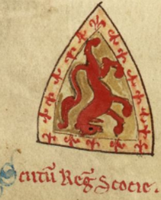 Scutū Reḡ Scocie.